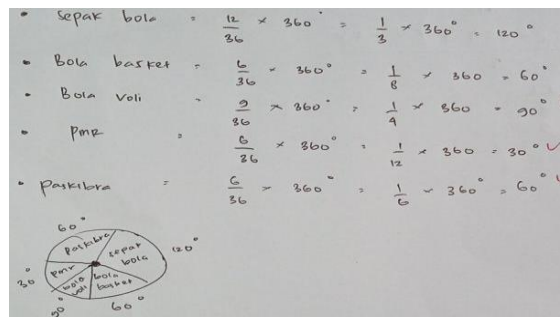 • Sepak bola = 12/36 × 360° = 1/3 × 360° = 120°
• Bola basket = 6/36 × 360° = 1/8 × 360 = 60°
• Bola voli = 9/36 × 360° = 1/4 × 360 = 90°
• PMR = 6/36 × 360° = 1/12 × 360 = 30°
• Paskibra = 6/36 × 360° = 1/6 × 360° = 60°
60°
Paskibra
sepak bola
120°
PMR
30°
bola voli
bola basket
90°
60°